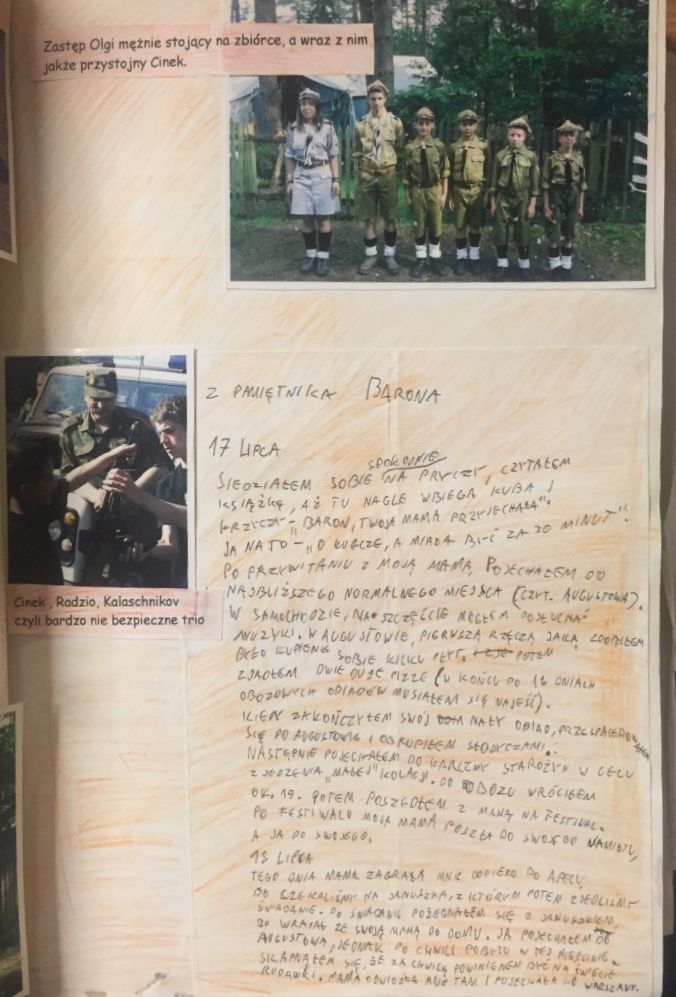 Zastęp Olgi mężnie stojący na zbiórce, a wraz z nim
jakże przystojny Cinek.
Cinek , Radzio, Kalaschnikov
czyli bardzo nie bezpieczne trio
Z PAMIĘTNIKA BARONA
17 LIPCA
SIEDZIAŁEM SOBIE SPOKOJNIE NA PRYCZY, CZYTAŁEM
KSIĄŻKĘ, AŻ TU NAGLE WBIEGA KUBA I
KRZYCZY - "BARON, TWOJA MAMA PRZYJECHAŁA".
JA NA TO - "O KURCZE, A MIAŁA BYĆ ZA 30 MINUT".
PO PRZYWITANIU Z MOJĄ MAMĄ, POJECHAŁEM DO
NAJBLIŻSZEGO NORMALNEGO MIEJSCA (CZYT. AUGUSTOWA).
W SAMOCHODZIE, NA SZCZĘŚCIE MOGŁEM POSŁUCHAĆ
MUZYKI. W AUGUSTOWIE, PIERWSZĄ RZĘCZĄ JAKĄ ZROBIŁEM
BYŁO KUPIENIE SOBIE KILKU PŁYT. POTEM
ZJADŁEM DWIE DUŻE PIZZE (W KOŃCU PO 16 DNIACH
OBOZOWYCH OBIADÓW MUSIAŁEM SIĘ NAJEŚĆ).
KIEDY ZAKOŃCZYŁEM SWÓJ MAŁY OBIAD, PRZESPACEROWAŁEM
SIĘ PO AUGUSTOWIE I OBKUPIŁEM SŁODYCZAMI.
NASTĘPNIE POJECHAŁEM DO KARCZMY STAROŻYN W CELU
ZJEDZENIA "MAŁEJ" KOLACJI. DO OBOZU WRÓCIŁEM
OK. 19. POTEM POSZEDŁEM Z MAMĄ NA FESTIWAL.
PO FESTIWALU MOJA MAMA POSZŁA DO SWOJEGO NAMIOTU,
A JA DO SWOJEGO.
LIPCA
TEGO DNIA MAMA ZABRAŁA MNIE DOPIERO PO APELU,
BO CZEKALIŚMY NA JANUSZKA, Z KTÓRYM POTEM ZJEDLIŚMY
ŚNIADANIE. PO ŚNIADANIU POŻEGNAŁEM SIĘ Z JANUSZKIEM,
BO WRACAŁ ZE SWOJĄ MAMĄ DO DOMU. JA POJECHAŁEM DO
AUGUSTOWA, JEDNAK PO CHWILI POBYTU W TEJ MIEŚCINIE.
SKAPNĄŁEM SIĘ, ŻE ZA CHWILĘ POWINIENEM BYĆ NA ŚWIĘCIE
RUDAWKI. MAMA ODWIOZŁA MNIE TAM I POJECHAŁA DO WARSZAWY.